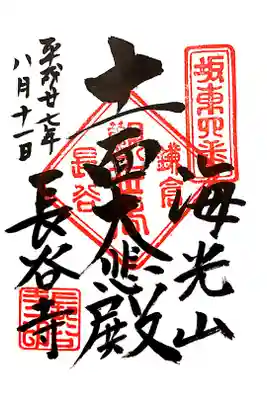 坂東四番
海光山
十一面大悲殿
鎌倉
長谷
長谷寺
平成廿七年
八月十一日